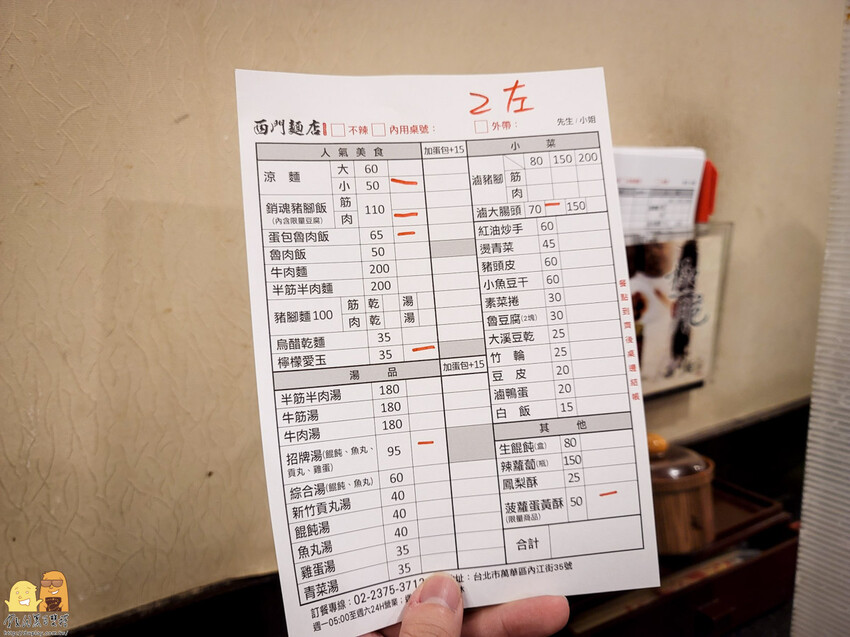 2 左
西門麵店 不辣 內用桌號： 外帶： 先生／小姐
人氣美食 加蛋包+15
涼麵 大 60
小 50
銷魂豬腳飯 (內含限量豆腐) 筋 肉 110
蛋包魯肉飯 65
魯肉飯 50
牛肉麵 200
半筋半肉麵 200
豬腳麵100 筋 乾 湯
肉 乾 湯
烏醋乾麵 35
檸檬愛玉 35
湯品 加蛋包+15
半筋半肉湯 180
牛筋湯 180
牛肉湯 180
招牌湯(餛飩、魚丸、貢丸、雞蛋) 95
綜合湯(餛飩、魚丸) 60
新竹貢丸湯 40
餛飩湯 40
魚丸湯 40
雞蛋湯 35
青菜湯 35
小菜
80 150 200
滷豬腳 筋
肉
滷大腸頭 70 150
紅油炒手 60
燙青菜 45
豬頭皮 60
小魚豆干 60
素菜捲 30
魯豆腐(2塊) 30
大溪豆乾 25
竹輪 25
豆皮 20
滷鴨蛋 20
白飯 15
其他
生餛飩(盒) 80
辣蘿蔔(瓶) 150
鳳梨酥 25
菠蘿蛋黃酥 (限量商品) 50
合計
餐點到齊後桌邊結帳
訂餐專線：02-2375-371 址：台北市萬華區內江街35號
週一05:00至週六24H營業；